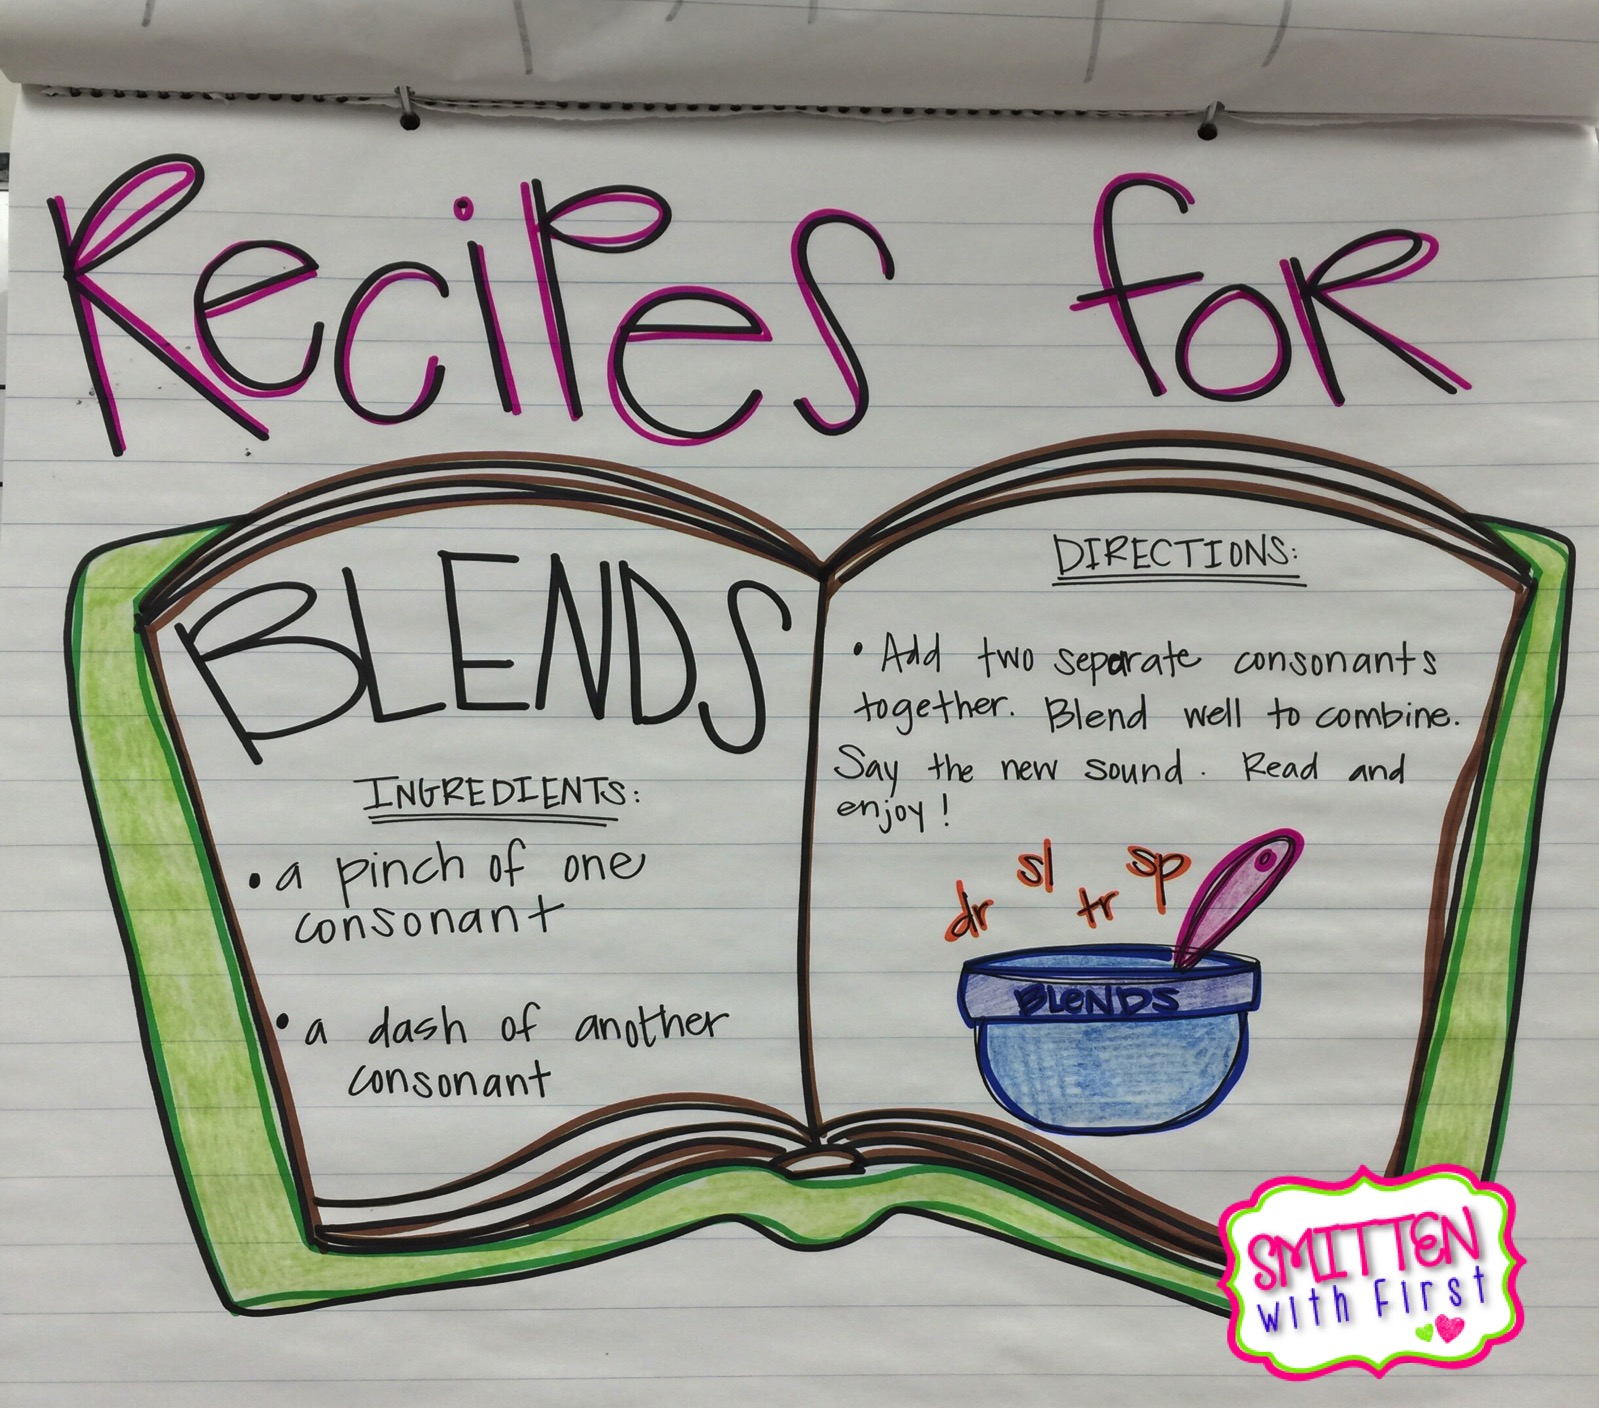 Recipes for
BLENDS
INGREDIENTS:
• a pinch of one
consonant
• a dash of another
consonant
DIRECTIONS:
• Add two separate consonants
together. Blend well to combine.
Say the new sound. Read and
enjoy!
dr sl tr sp
BLeNDS
SMITTEN
with First